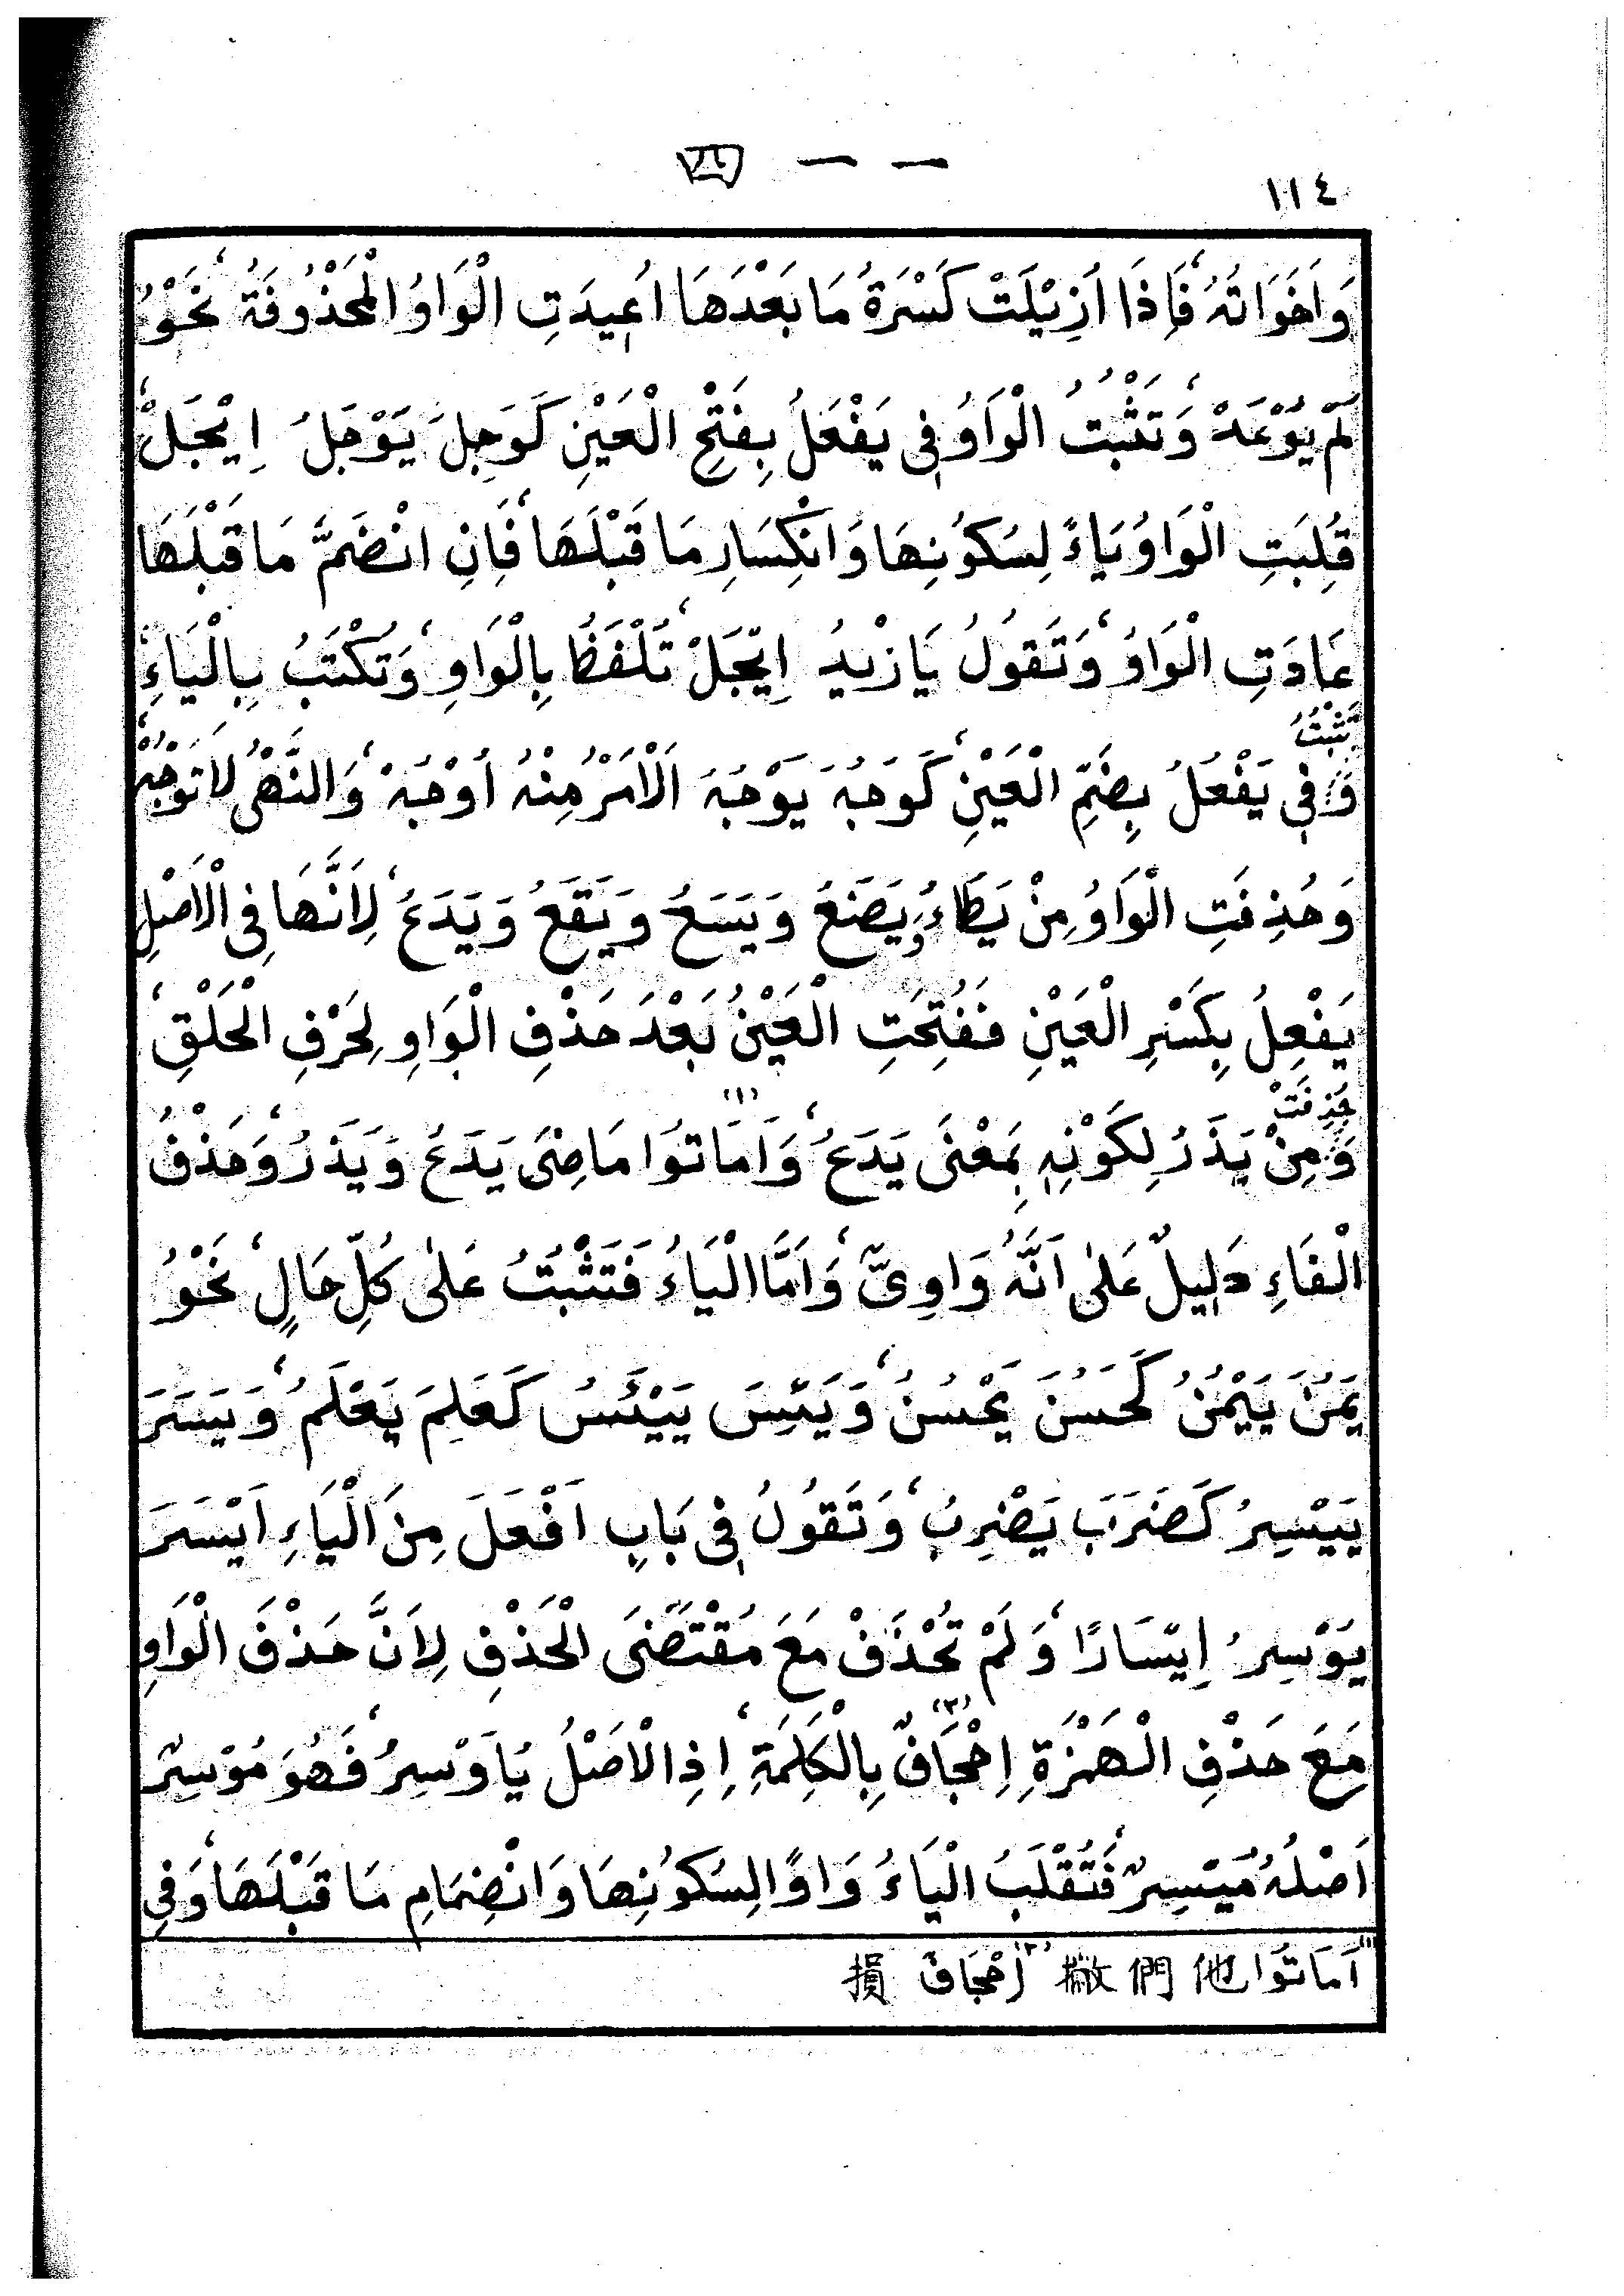 四 一 一
١١٤
وَاَخَوَاتُهُ فَاِذَا اُزِيْلَتْ كَسْرَةُ مَا بَعْدَهَا اُعِيدَتِ الْوَاوُ الْمَحْذُوفَةُ نَحْوُ
لَمْ يُوْعَدْ وَتَثْبُتُ الْوَاوُ فِى يَفْعَلُ بِفَتْحِ الْعَيْنِ كَوَجِلَ يَوْجَلُ اِيْجَلْ
قُلِبَتِ الْوَاوُ يَاءً لِسُكُونِهَا وَانْكِسَارِ مَا قَبْلَهَا فَاِنِ انْضَمَّ مَا قَبْلَهَا
عَادَتِ الْوَاوُ وَتَقُولُ يَازَيْدُ اِيْجَلْ تَلْفَظُ بِالْوَاوِ وَتُكْتَبُ بِالْيَاءِ
تَثْبُتُ
وَفِى يَفْعُلُ بِضَمِّ الْعَيْنِ كَوَجُهَ يَوْجُهُ اَلْاَمْرُ مِنْهُ اُوْجُهْ وَالنَّهْىُ لَا تَوْجُهْ
وَحُذِفَتِ الْوَاوُ مِنْ يَطَاءُ وَيَضَعُ وَيَسَعُ وَيَقَعُ وَيَدَعُ لِاَنَّهَا فِى الْاَصْلِ
يَفْعِلُ بِكَسْرِ الْعَيْنِ فَفُتِحَتِ الْعَيْنُ بَعْدَ حَذْفِ الْوَاوِ لِحَرْفِ الْحَلْقِ
حُذِفَتْ
وَمِنْ يَذَرُ لِكَوْنِهِ بِمَعْنَى يَدَعُ وَاَمَاتُوا (١) مَاضِىَ يَدَعُ وَيَذَرُ وَحَذْفُ
الْفَاءِ دَلِيلٌ عَلٰى اَنَّهُ وَاوِىٌّ وَاَمَّا الْيَاءُ فَتَثْبُتُ عَلٰى كُلِّ حَالٍ نَحْوُ
يَمُنَ يَيْمُنُ كَحَسُنَ يَحْسُنُ وَيَئِسَ يَيْئَسُ كَعَلِمَ يَعْلَمُ وَيَسَرَ
يَيْسِرُ كَضَرَبَ يَضْرِبُ وَتَقُولُ فِى بَابِ اَفْعَلَ مِنَ الْيَاءِ اَيْسَرَ
يُوْسِرُ اِيْسَارًا وَلَمْ تُحْذَفْ مَعَ مُقْتَضَى الْحَذْفِ لِاَنَّ حَذْفَ الْوَاوِ
مَعَ حَذْفِ الْهَمْزَةِ اِحْجَافٌ (٢) بِالْكَلِمَةِ اِذِ الْاَصْلُ يُاَوْسِرُ فَهُوَ مُوْسِرٌ
اَصْلُهُ مُيْسِرٌ فَتُقْلَبُ الْيَاءُ وَاوًا لِسُكُونِهَا وَانْضِمَامِ مَا قَبْلَهَا وَفِى
(١) اَمَاتُوا 他們撇 (٢) اِحْجَافٌ 損